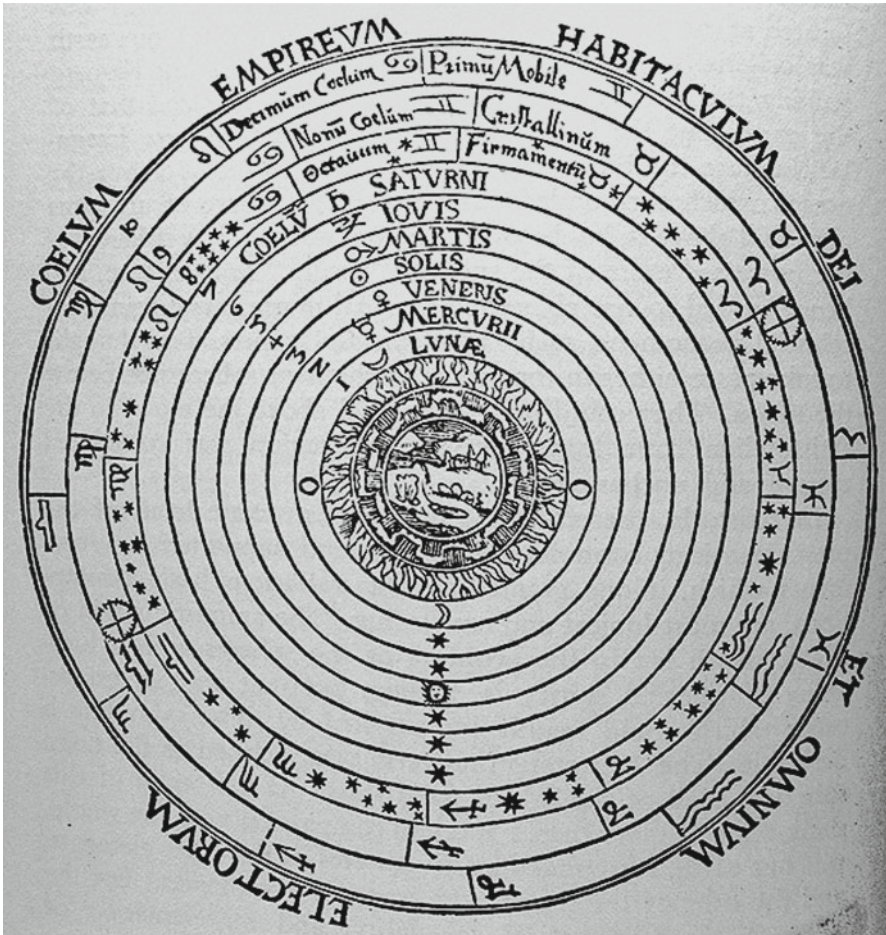 COELVM EMPIREVM HABITACVLVM DEI ET OMNIVM ELECTORVM
10 Decimum Coelum ♋ Primū Mobile ♊
9 Nonū Coelum ♊ Cristallinūm ♉
8 Octauum ♊ Firmamentū ♉
7 COELV̄ ♄ SATVRNI
6 ♃ IOVIS
5 ♂ MARTIS
4 ☉ SOLIS
3 ♀ VENERIS
2 ☿ MERCVRII
1 ☽ LVNÆ